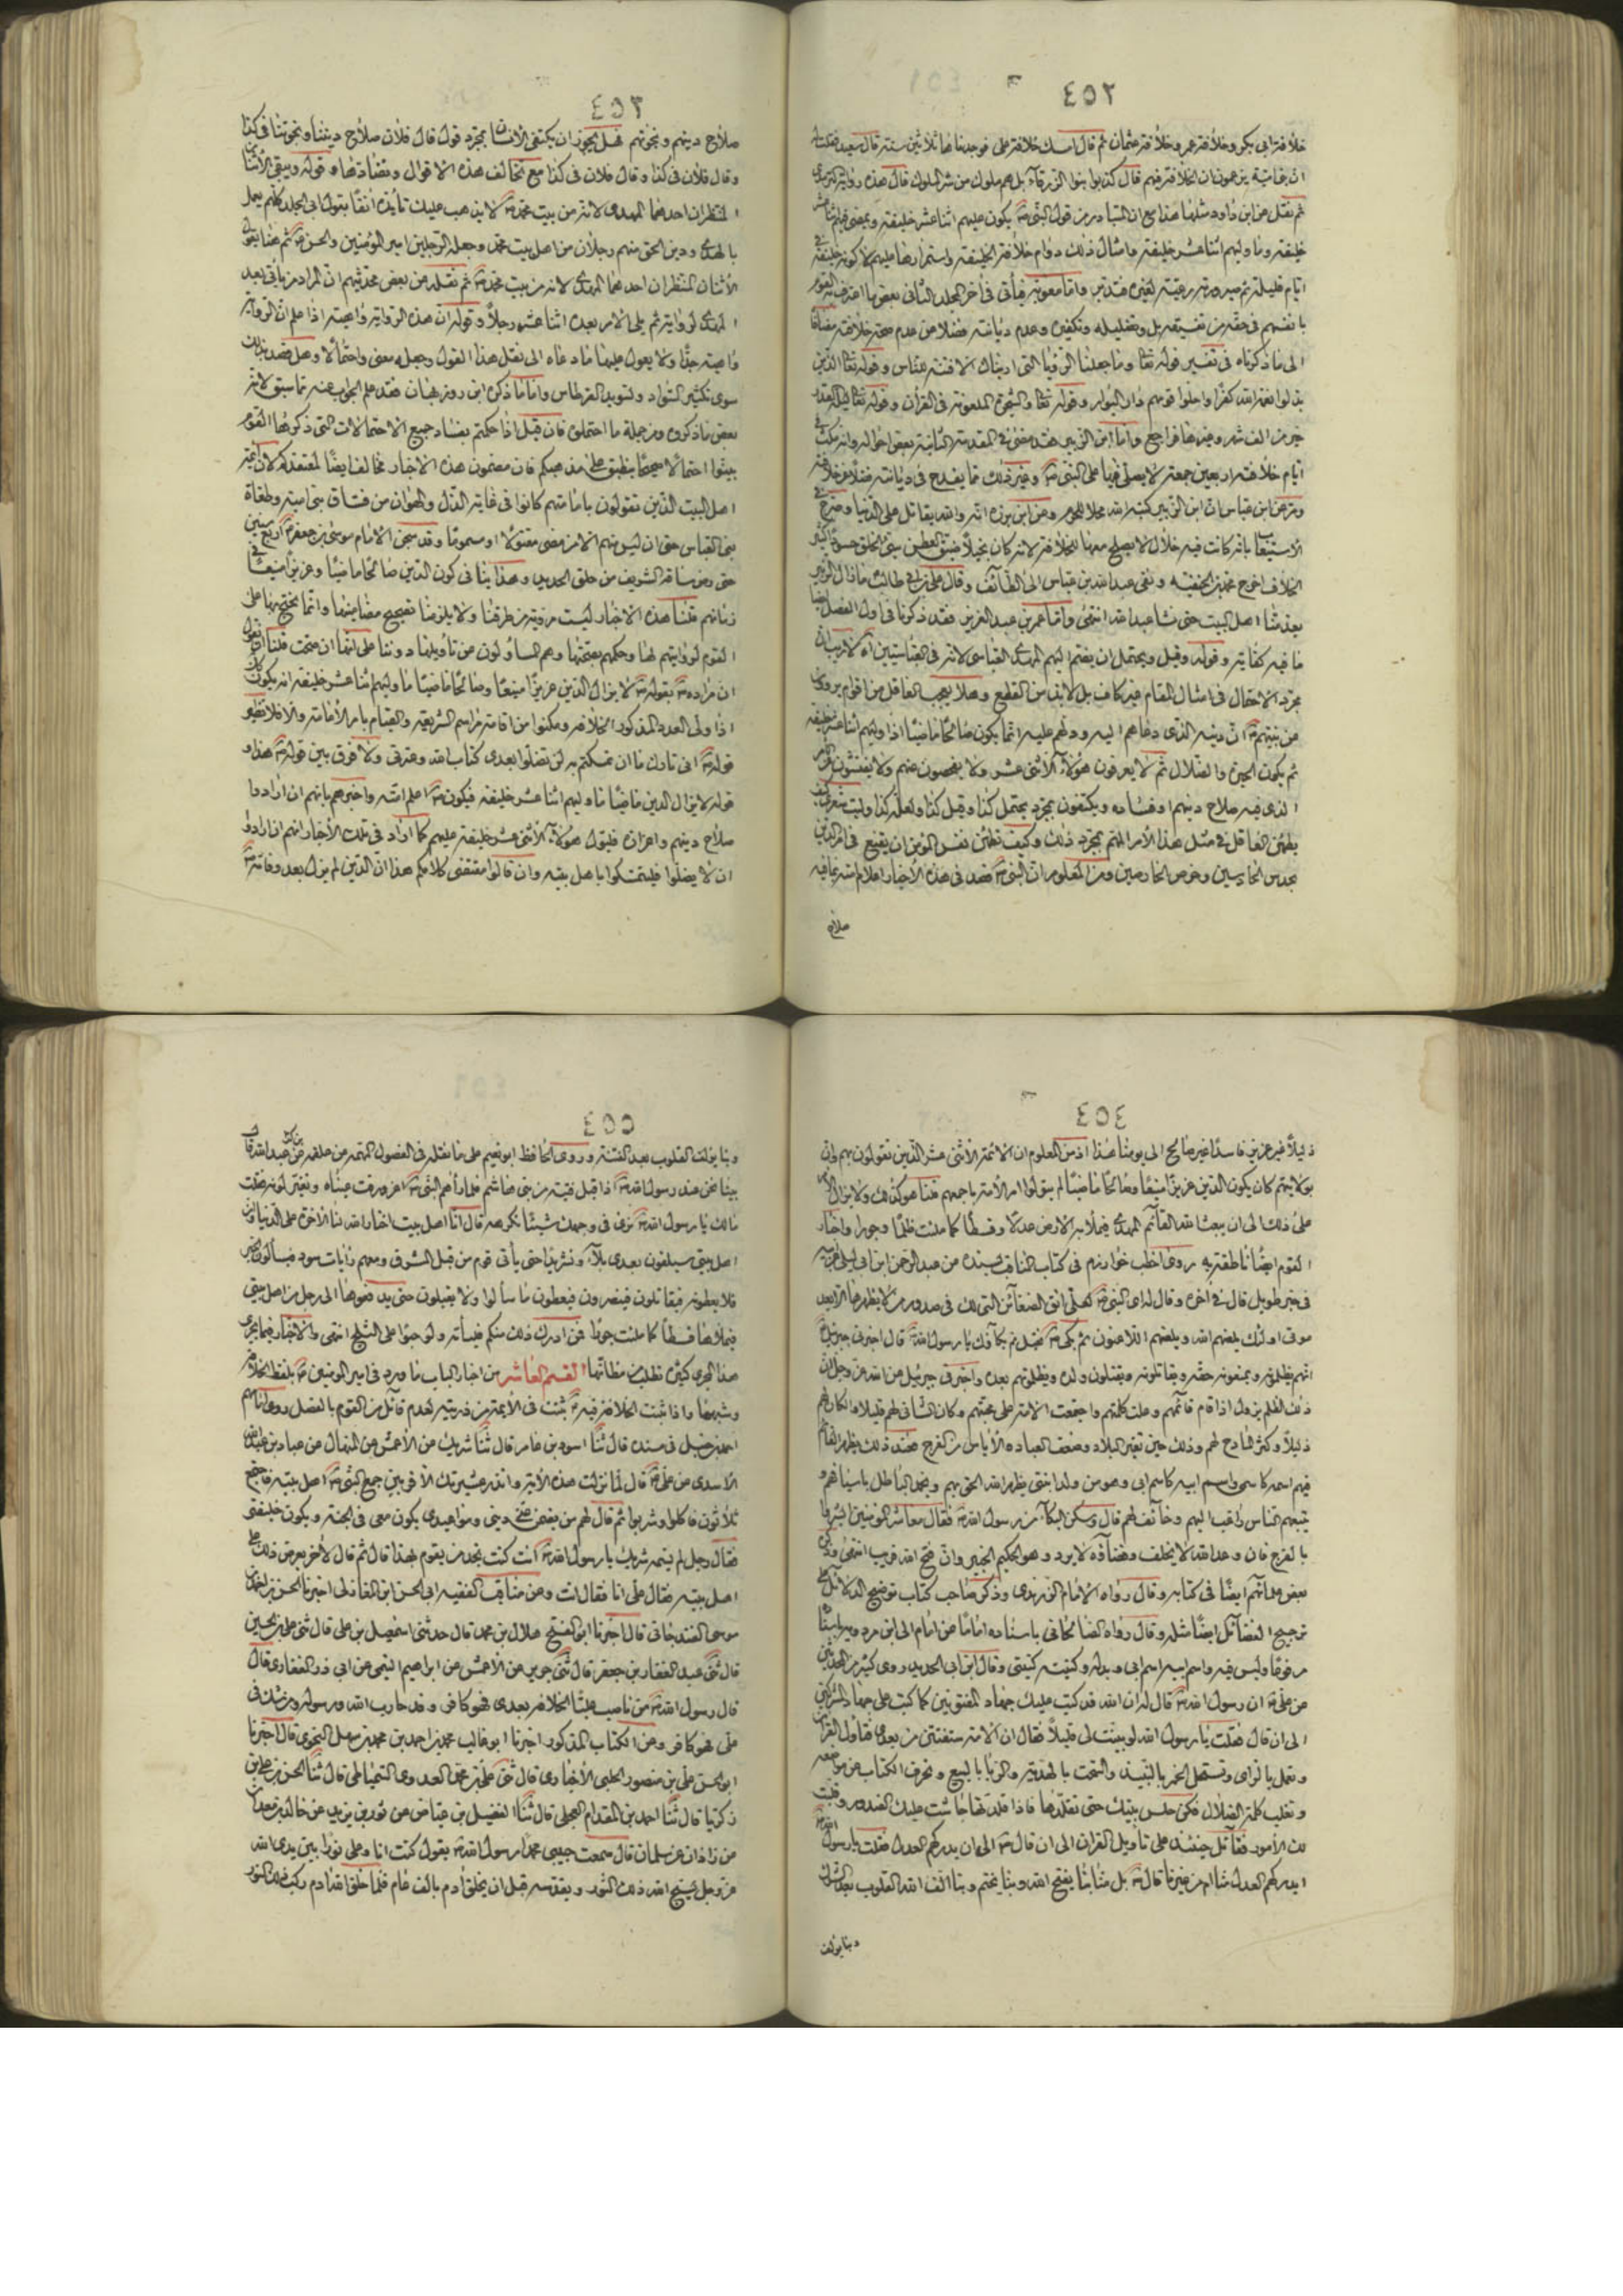 ٤٥٢
خلافة ابي بكر وخلافة عمر وخلافة عثمان ثم قال امسك خلافة علي فوجدناها ثلاثين سنة قال سعيد فقلت له
ان بني امية يزعمون ان الخلافة فيهم قال كذبوا بنوا الزرقاء بل هم ملوك من شر الملوك قال هذه رواية الترمذي
ثم نقل عن ابي داود مثلها هذا مع ان المتبادر من قول النبي يكون عليهم اثنا عشر خليفة وبمعنى فيهم اثنا عشر
خليفة وما وليهم اثنا عشر خليفة وامثال ذلك دوام خلافة الخليفة واستمرارها عليهم لا كونه خليفة في
ايام قليلة ثم صيرورته رعية لغيره فتدبر واما معوية فيأتي في اخر المجلد الثاني بعض ما اعترف به القوم
بانفسهم في حقه من تفسيقه بل وتضليله وتكفيره وعدم ديانته فضلا عن عدم صحة خلافته مضافا
الى ما ذكرناه في تفسير قوله تعا وما جعلنا الرؤيا التي اريناك الا فتنة للناس وقوله تعا الذين
بدلوا نعمة الله كفرا واحلوا قومهم دار البوار وقوله تعا والشجرة الملعونة في القران وقوله تعا ليلة القدر
خير من الف شهر وغيرها فراجع واما ابن الزبير فقد مضى في المقدمة الثانية بعض احواله وانه مكث في
ايام خلافته اربعين جمعة لا يصلي فيها على النبي وغير ذلك مما يقدح في ديانته فضلا عن خلافته
وعن ابن عباس ان ابن الزبير كتبه الله محلا للحرم وعن ابي برزة انه والله يقاتل على الدنيا وصرح في
الاستيعاب بانه كانت فيه خلال لا يصلح معها للخلافة لانه كان بخيلا ضيق العطن سيئ الخلق حسودا كثير
الخلاف اخرج محمد بن الحنفية ونفى عبد الله بن عباس الى الطائف وقال علي بن ابي طالب ما زال الزبير
يعد منا اهل البيت حتى نشا عبد الله انتهى واما عمر بن عبد العزيز فقد ذكرنا في اول الفصل
ما فيه كفاية وقوله وقيل ويحتمل ان يضم اليهم المهدي العباسي لانه في العباسيين اه لا ريب ان
مجرد الاحتمال في امثال المقام غير كاف بل لابد من القطع وهلا يعجب العاقل من اقوام يروون
عن نبيهم ان دينه الذي دعاهم اليه ودلهم عليه انما يكون صالحا ماضيا اذا وليهم اثنا عشر خليفة
ثم يكون الحيرة والضلال ثم لا يعرفون هؤلاء الاثني عشر ولا يفحصون عنهم ولا يفتشون
الذي فيه صلاح دينهم او فساده ويكتفون بمجرد يحتمل كذا وقيل كذا ولعله كذا وليت شعري كيف
يطمئن العاقل في مثل هذا الامر المهم بمجرد ذلك وكيف تطمئن نفس المؤمن ان يقنع في امر الدين
بحدس الحادسين وخرص الخارصين ومن المعلوم ان النبي قصد في هذه الاخبار اعلام امته بما فيه
صلاح
٤٥٣
صلاح دينهم ونجوتهم فهل يجوز ان يكتفي الانسان بمجرد قول قال فلان صلاح ديننا ونجوتنا في كذا
وقال فلان في كذا وقال فلان في كذا مع تخالف هذه الاقوال ومضادتها وقوله ويبقى الاثنا
المنتظران احدهما المهدي لانه من بيت محمد لا يذهب عليك تأييده انفا بقول ابي الجلد كلهم يعمل
بالهدى ودين الحق منهم رجلان من اهل بيت محمد وجعله الرجلين امير المؤمنين والحسن ثم هنا يقول
الاثنان المنتظران احدهما المهدي لانه من بيت محمد ثم نقله عن بعض محدثيهم ان المراد من ياتي بعد
المهدي لرواية ثم يلي الامر بعده اثنا عشر رجلا وقوله ان هذه الرواية واهية اذا علم ان الرواية
واهية جدا ولا يعول عليها ما دعاه الى نقل هذا القول وجعله معنى واحتمالا وهل قصد بذلك
سوى تكثير السواد وتسويد القرطاس واما ما ذكره ابن روزبهان فقد علم الجواب عنه مما سبق لانه
بعض ما ذكروه ومن جملة ما احتملوه فان قيل اذا حكمتم بفساد جميع الاحتمالات التي ذكرها القوم
بينوا احتمالا صحيحا ينطبق على مذهبكم فان مضمون هذه الاخبار مخالف ايضا لمعتقدكم لان ائمة
اهل البيت الذين تقولون بامامتهم كانوا في غاية الذل والهوان من فساق بني امية وطغاة
بني العباس حتى ان ليس منهم الا من مضى مقتولا او مسموما وقد سجن الامام موسى بن جعفر اربع سنين
حتى رض ساقه الشريف من حلق الحديد وهذا ينافي كون الدين صالحا ماضيا وعزيزا منيعا في
زمانهم قلنا هذه الاخبار ليست مروية من طرقنا ولا يلزمنا تصحيح مضامينها وانما نحتج بها على
القوم لروايتهم لها وحكمهم بصحتها وهم المسؤلون عن تأويلها دوننا على انها ان صحت قلنا
ان مراده بقوله لا يزال الدين عزيزا منيعا وصالحا ماضيا ما وليهم اثنا عشر خليفة انه يكون كك
اذا ولى العدد المذكور الخلافة ومكنوا من اقامة مراسم الشريعة والقيام بامر الامامة والا فلا نظير
قوله اني تارك ما ان تمسكتم به لن تضلوا بعدي كتاب الله وعترتي ولا فرق بين قوله هذا و
قوله لا يزال الدين ماضيا ما وليهم اثنا عشر خليفة فيكون اعلم امته واخبرهم بانهم ان ارادوا
صلاح دينهم واعزازه فليول هؤلاء الاثني عشر خليفة عليهم كما اراد في تلك الاخبار انهم ان ارادوا
ان لا يضلوا فليتمسكوا باهل بيته وان قالوا مقتضى كلامكم هذا ان الدين لم يزل بعد وفاته
٤٥٤
ذليلا غير عزيز فاسدا غير صالح الى يومنا هذا اذ من المعلوم ان الائمة الاثني عشر الذين تقولون بهم
بولايتهم كان يكون الدين عزيزا منيعا وصالحا ماضيا لم يتولوا امر الامة باجمعهم قلنا هو كذلك ولا يزال
على ذلك الى ان يبعث الله القائم المهدي فيملا به الارض عدلا وقسطا كما ملئت ظلما وجورا واخبار
القوم ايضا ناطقة به روى اخطب خوارزم في كتاب المناقب بسنده عن عبد الرحمن ابن ابي ليلى عن ابيه
في خبر طويل قال في اخره وقال له اي النبي لعلي اتق الضغائن التي لك في صدور من لا يظهرها الا بعد
موتي اولئك يلعنهم الله ويلعنهم اللاعنون ثم بكى فقيل مم بكاؤك يا رسول الله قال اخبرني جبرئيل
انهم يظلمونه ويمنعونه حقه ويقاتلونه ويقتلون ولده ويظلمونهم بعده واخبرني جبرئيل عن الله عز وجل ان
ذلك الظلم يزول اذا قام قائمهم وعلت كلمتهم واجتمعت الامة على محبتهم وكان الشاني لهم قليلا والكاره لهم
ذليلا وكثر المادح لهم وذلك حين تغير البلاد وضعف العباد والاياس من الفرج فعند ذلك يظهر القائم
فيهم اسمه كاسمي واسم ابيه كاسم ابي وهو من ولد ابنتي يظهر الله الحق بهم ويخمد الباطل باسيافهم و
يتبعهم الناس راغبا اليهم وخائف لهم قال وسكن البكاء من رسول الله فقال معاشر المؤمنين ابشروا
بالفرج فان وعد الله لا يخلف وقضاؤه لا يرد وهو الحكيم الخبير وان فتح الله قريب انتهى وذكره
بعض علمائهم ايضا في كتابه وقال رواه الامام الزرندي وذكر صاحب كتاب توضيح الدلائل على
ترجيح الفضائل ايضا مثله وقال رواه الصالحاني باسناده اماما عن امام الى ابن مردويه
مرفوعا وليس فيه واسم ابيه اسم ابي وبدله وكنيته كنيتي وقال ابن ابي الحديد روى كثير من المحدثين
عن علي ان رسول الله قال له ان الله قد كتب عليك جهاد المفتونين كما كتب علي جهاد المشركين
الى ان قال فقلت يا رسول الله لو بينت لي قليلا فقال ان الامة ستفتتن من بعدي فتأول القران
وتعمل بالراي وتستحل الخمر بالنبيذ والسحت بالهدية والربا بالبيع وتحرف الكتاب عن مواضعه
وتغلب كلمة الضلال فكن حلس بيتك حتى تقلدها فاذا قلدتها جاشت عليك الصدور وقلبت
لك الامور فقاتل حينئذ على تأويل القران الى ان قال الى ان يدركهم العدل فقلت يا رسول الله
ايدركهم العدل منا ام من غيرنا قال بل منا بنا يفتح الله وبنا يختم وبنا الف الله القلوب بعد الشرك
وبنا يؤلف
٤٥٥
وبنا يؤلف القلوب بعد الفتنة وروى الحافظ ابو نعيم على ما نقله في الفصول المهمة عن علقمة عن عبد الله قال
بينا نحن عند رسول الله اذا قبل فتية من بني هاشم فلما رآهم النبي اغرورقت عيناه وتغير لونه فقلت
مالك يا رسول الله نرى في وجهك شيئا نكرهه قال انا اهل بيت اختار الله لنا الاخرة على الدنيا وان
اهل بيتي سيلقون بعدي بلاء وتشريدا حتى يأتي قوم من قبل المشرق ومعهم رايات سود فيسألون الخير
فلا يعطونه فيقاتلون فينصرون فيعطون ما سألوا ولا يقبلون حتى يدفعوها الى رجل من اهل بيتي
فيملأها قسطا كما ملئت جورا فمن ادرك ذلك منكم فليأته ولو حبوا على الثلج انتهى والاخبار في المجرى
هذا المجرى كثيرة تطلب من مظانها القسم العاشر من اخبار الباب ما ورد في امير المؤمنين بلفظ الخلافة
وشبهها واذا ثبت الخلافة فيه ثبتت في الائمة من ذريته لعدم قائل من القوم بالفصل روى امامهم
احمد بن حنبل في مسنده قال ثنا اسود بن عامر قال ثنا شريك عن الاعمش عن المنهال عن عباد بن عبد الله
الاسدي عن علي قال لما نزلت هذه الاية وانذر عشيرتك الاقربين جمع النبي اهل بيته فاجتمع
ثلاثون فاكلوا وشربوا ثم قال لهم من يضمن عني ديني ومواعيدي يكون معي في الجنة ويكون خليفتي
فقال رجل لم يسمه شريك يا رسول الله انت كنت تجد من يقوم بهذا قال ثم قال لاخر يعرض ذلك على
اهل بيته فقال علي انا فقال انت وعن مناقب الفقيه ابي الحسن ابن المغازلي اخبرنا الحسن بن احمد بن
موسى الغندجاني قال اخبرنا ابو الفتح هلال بن محمد قال حدثني اسمعيل بن علي قال ثنى علي بن الحسين
قال ثنى عبد الغفار بن جعفر قال ثنى جرير عن الاعمش عن ابراهيم التيمي عن ابي ذر الغفاري قال
قال رسول الله من ناصب عليا الخلافة بعدي فهو كافر وقد حارب الله ورسوله ومن شك في
علي فهو كافر وعن الكتاب المذكور اخبرنا ابو غالب محمد بن احمد بن محمد بن سهل النحوي قال اخبرنا
ابو الحسن علي بن منصور الحلبي الاخباري قال ثنى علي بن محمد العدوي الشمشاطي قال ثنا الحسن بن علي بن
زكريا قال ثنا احمد بن المقدام العجلي قال ثنا الفضيل بن عياض عن ثور بن يزيد عن خالد بن معدان
عن زاذان عن سلمان قال سمعت حبيبي محمد رسول الله يقول كنت انا وعلي نورا بين يدي الله
عز وجل يسبح الله ذلك النور ويقدسه قبل ان يخلق ادم بالف عام فلما خلق الله ادم ركب ذلك النور